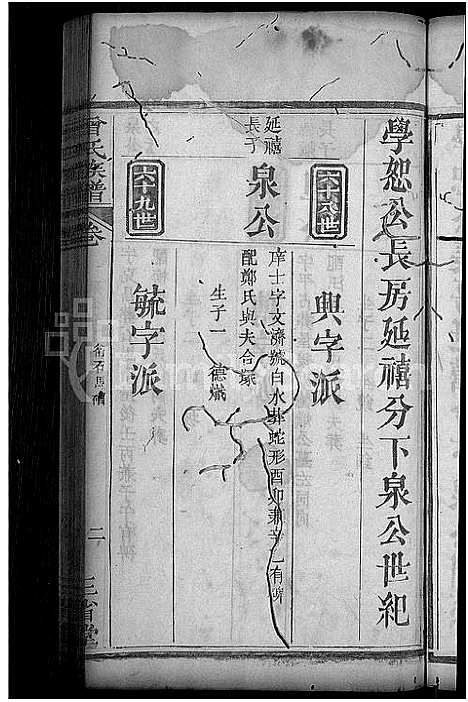 學恕公長房延禧分下泉公世紀
六十八世
興字派
延禧
長子
泉公
庠士字文濟號白水葬蛇形酉卯兼辛乙有碑
配鄭氏與夫合塚
生子一
德熾
六十九世
毓字派
曾氏族譜
卷
二
三省堂